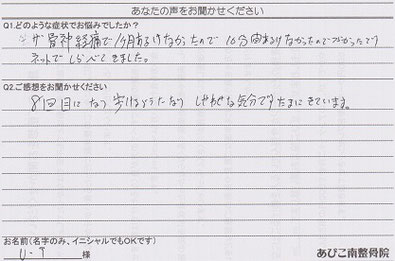 あなたの声をお聞かせください
Q1.どのような症状でお悩みでしたか?
ザ骨神経痛で1ヶ月あるけなかったので 10分間あるけなかったのでつらかったです
ネットでしらべてきました。
Q2.ご感想をお聞かせください
8回目になり 歩けるようになり しあわせな気分です たまにきています。
お名前(名字のみ、イニシャルでもOKです)
U-T 様
あびこ南整骨院